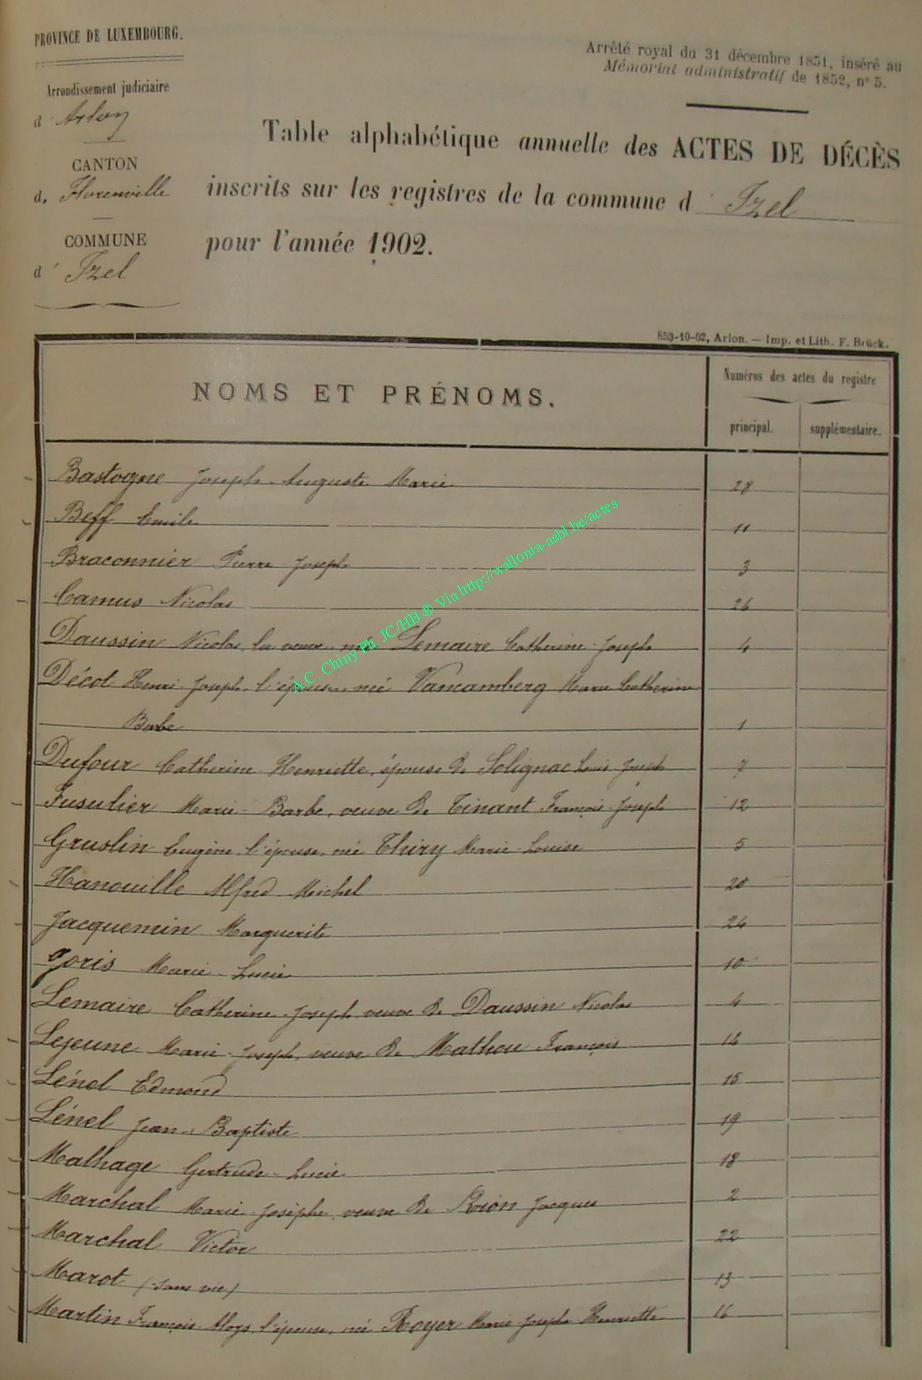 PROVINCE DE LUXEMBOURG.
Arrondissement judiciaire
d' Arlon
CANTON
d. Florenville
COMMUNE
d' Izel
Arrêté royal du 31 décembre 1851, inséré au
Mémorial administratif de 1852, n° 5.
Table alphabétique annuelle des ACTES DE DÉCÈS
inscrits sur les registres de la commune d' Izel
pour l'année 1902.
853-10-02, Arlon. — Imp. et Lith. F. Brück.
NOMS ET PRÉNOMS.
Numéros des actes du registre
principal. supplémentaire.
Bastogne Joseph Auguste Marie 28
Beff Emile 11
Braconnier Pierre Joseph 3
Camus Nicolas 26
Daussin Nicolas, la veuve, née Lemaire Catherine Joseph 4
Décot Henri Joseph, l'épouse, née Vancamberg Marie Catherine
Barbe 1
Dufour Catherine Henriette, épouse de Solignac Louis Joseph 7
Fusulier Marie-Barbe, veuve de Tinant François-Joseph 12
Gruslin Eugène, l'épouse, née Thiry Marie Louise 5
Hanouille Alfred Michel 20
Jacquemin Marguerite 24
Goris Marie-Lucie 10
Lemaire Catherine-Joseph, veuve de Daussin Nicolas 4
Lejeune Marie-Joseph, veuve de Mathou François
Lénel Edmond 15
Lénel Jean-Baptiste 19
Malhage Gertrude-Lucie 18
Marchal Marie-Josèphe, veuve de Rion Jacques 2
Marchal Victor 22
Marot (sans vie) 13
Martin François Aloys, l'épouse, née Royer Marie-Josèphe Henriette 16
A.C. Chiny Ph. JC/HB ® Via http://wallonia-asbl.be/actes